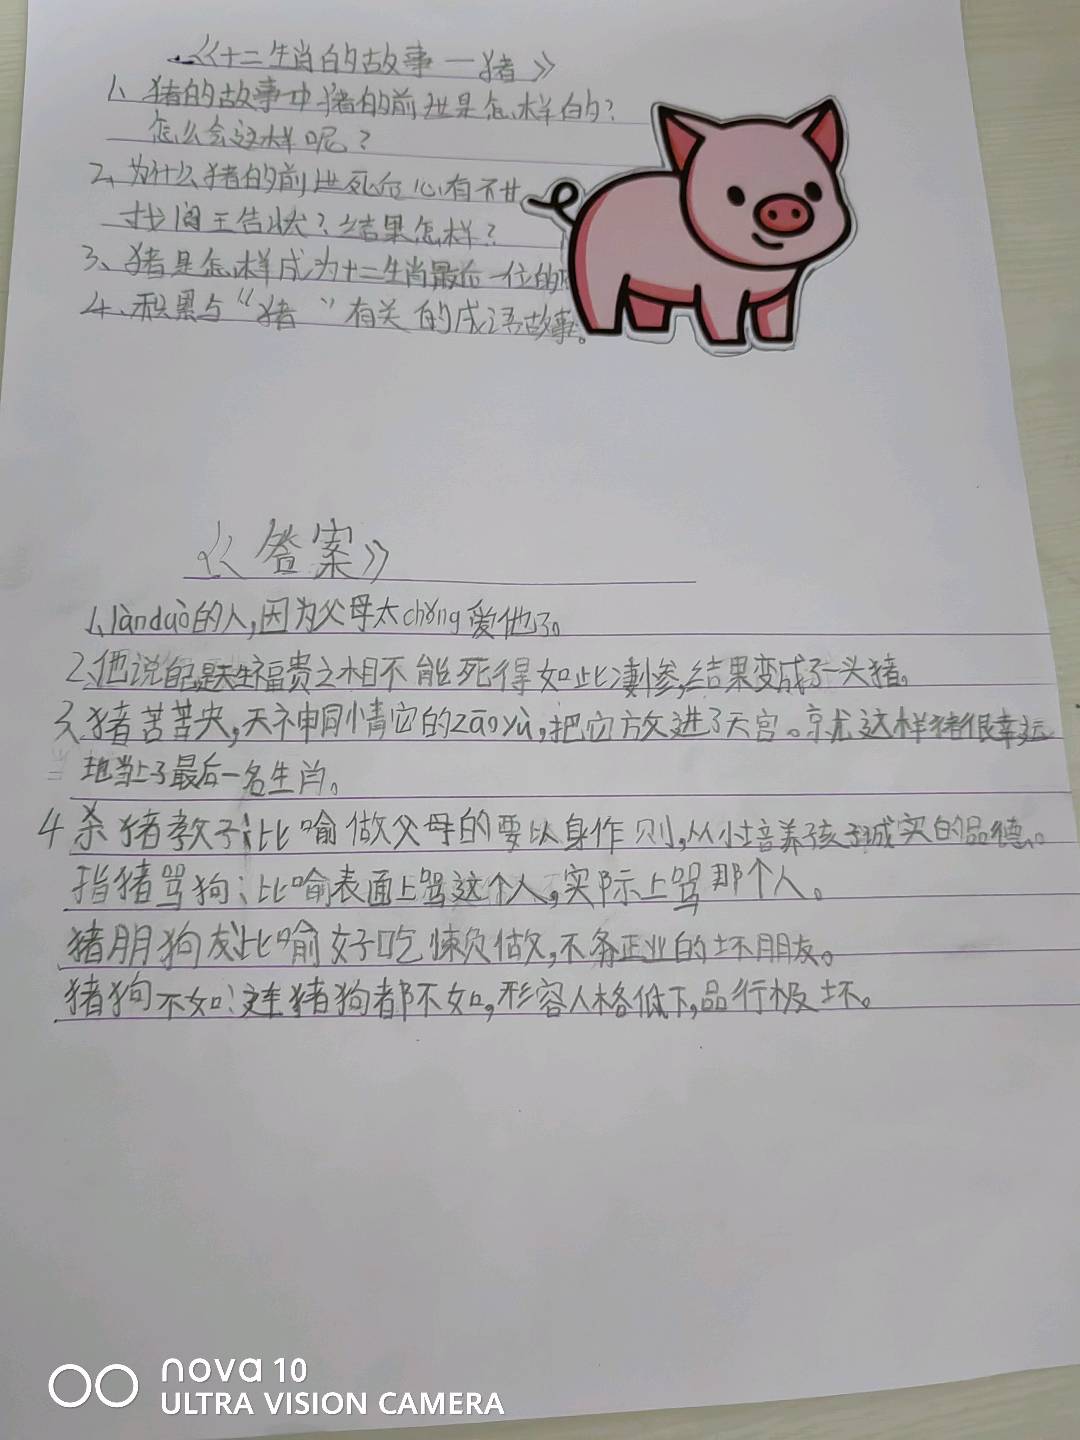 《十二生肖的故事一猪》
1、猪的故事中猪的前世是怎样的?
怎么会这样呢?
2、为什么猪的前世死后心有不甘
找阎王告状?结果怎样?
3、猪是怎样成为十二生肖最后一位的
4、积累与“猪”有关的成语故事。
《答案》
1、lànduò的人,因为父母太chǒng爱他了。
2、他说自己是天生福贵之相不能死得如此凄惨,结果变成了一头猪。
3、猪苦苦央,天神同情它的zāoyù,把它放进了天宫。就这样猪很幸运
地当上了最后一名生肖。
4 杀猪教子:比喻做父母的要以身作则,从小培养孩子诚实的品德。
指猪骂狗:比喻表面上骂这个人,实际上骂那个人。
猪朋狗友:比喻好吃懒做,不务正业的坏朋友。
猪狗不如:连猪狗都不如,形容人格低下,品行极坏。
nova 10
ULTRA VISION CAMERA